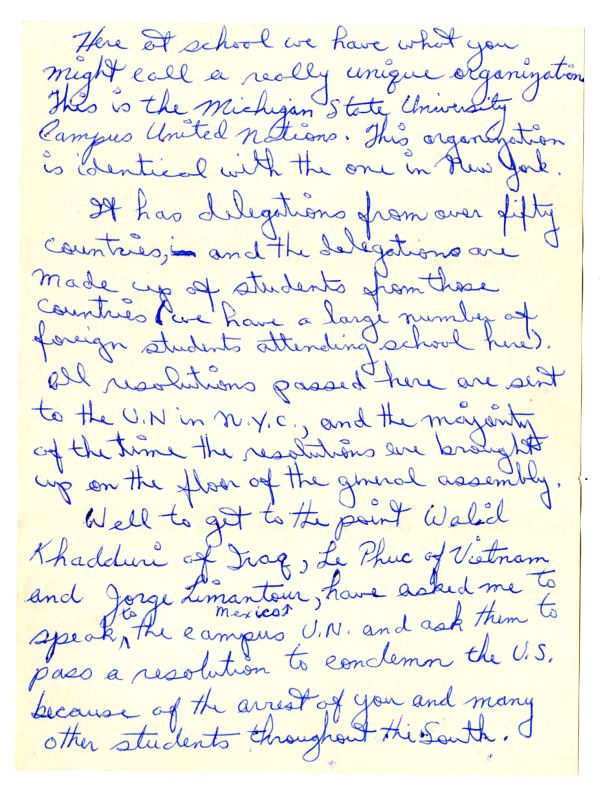 Here at school we have what you
might call a really unique organization
This is the Michigan State University
Campus United Nations. This organization
is identical with the one in New York.
It has delegations from over fifty
countries, and the delegations are
made up of students from those
countries (we have a large number of
foreign students attending school here).
All resolutions passed here are sent
to the U.N in N.Y.C., and the majority
of the time the resolutions are brought
up on the floor of the general assembly.
Well to get to the point Walid
Khadduri of Iraq, Le Phuc of Vietnam
and Jorge Limantour, have asked me to
to Mexico
speak the campus U.N. and ask them to
pass a resolution to condemn the U.S.
because of the arrest of you and many
other students throughout the South.